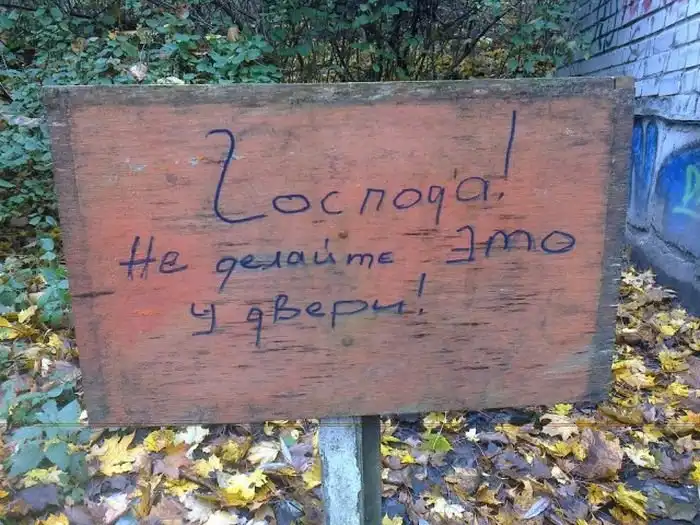 Господа!
Не делайте это
у двери!